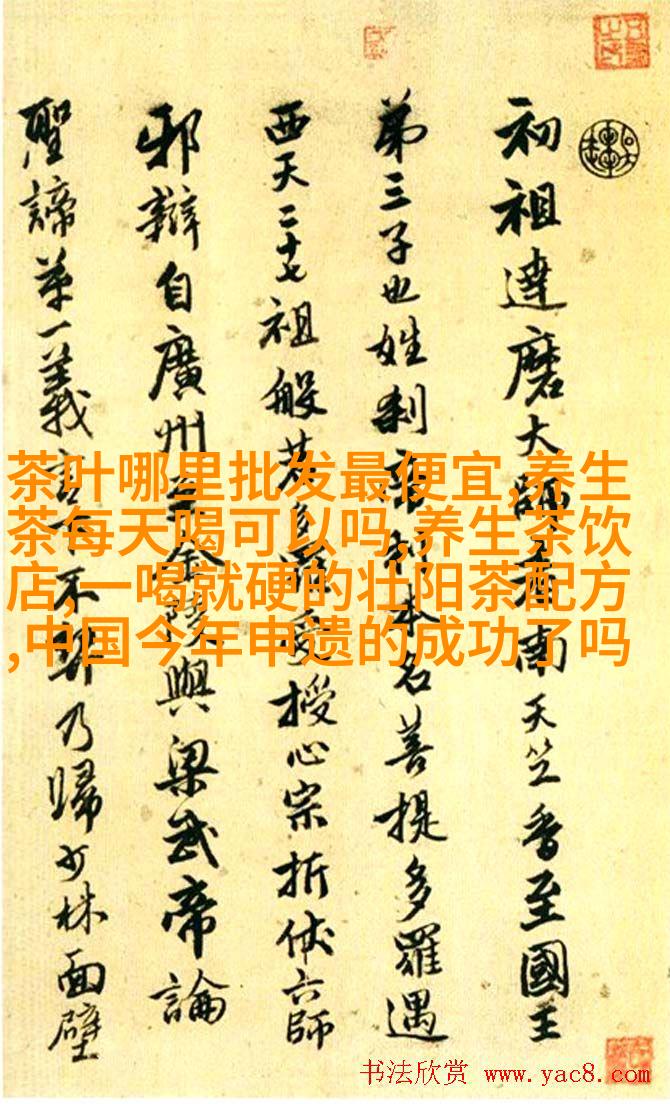 初祖達磨大師者南天竺香至國王
第三子也姓刹帝利本名菩提多羅遇
西天二十七祖般若多羅受授心宗折伏六師
邪辯自廣州至金陵與梁武帝論
聖諦第一義言下不契乃歸少林面壁
茶叶哪里批发最便宜,养生
茶每天喝可以吗,养生茶饮
店,一喝就硬的壮阳茶配方
,中国今年申遗的成功了吗
书法欣赏 www.yac8.com